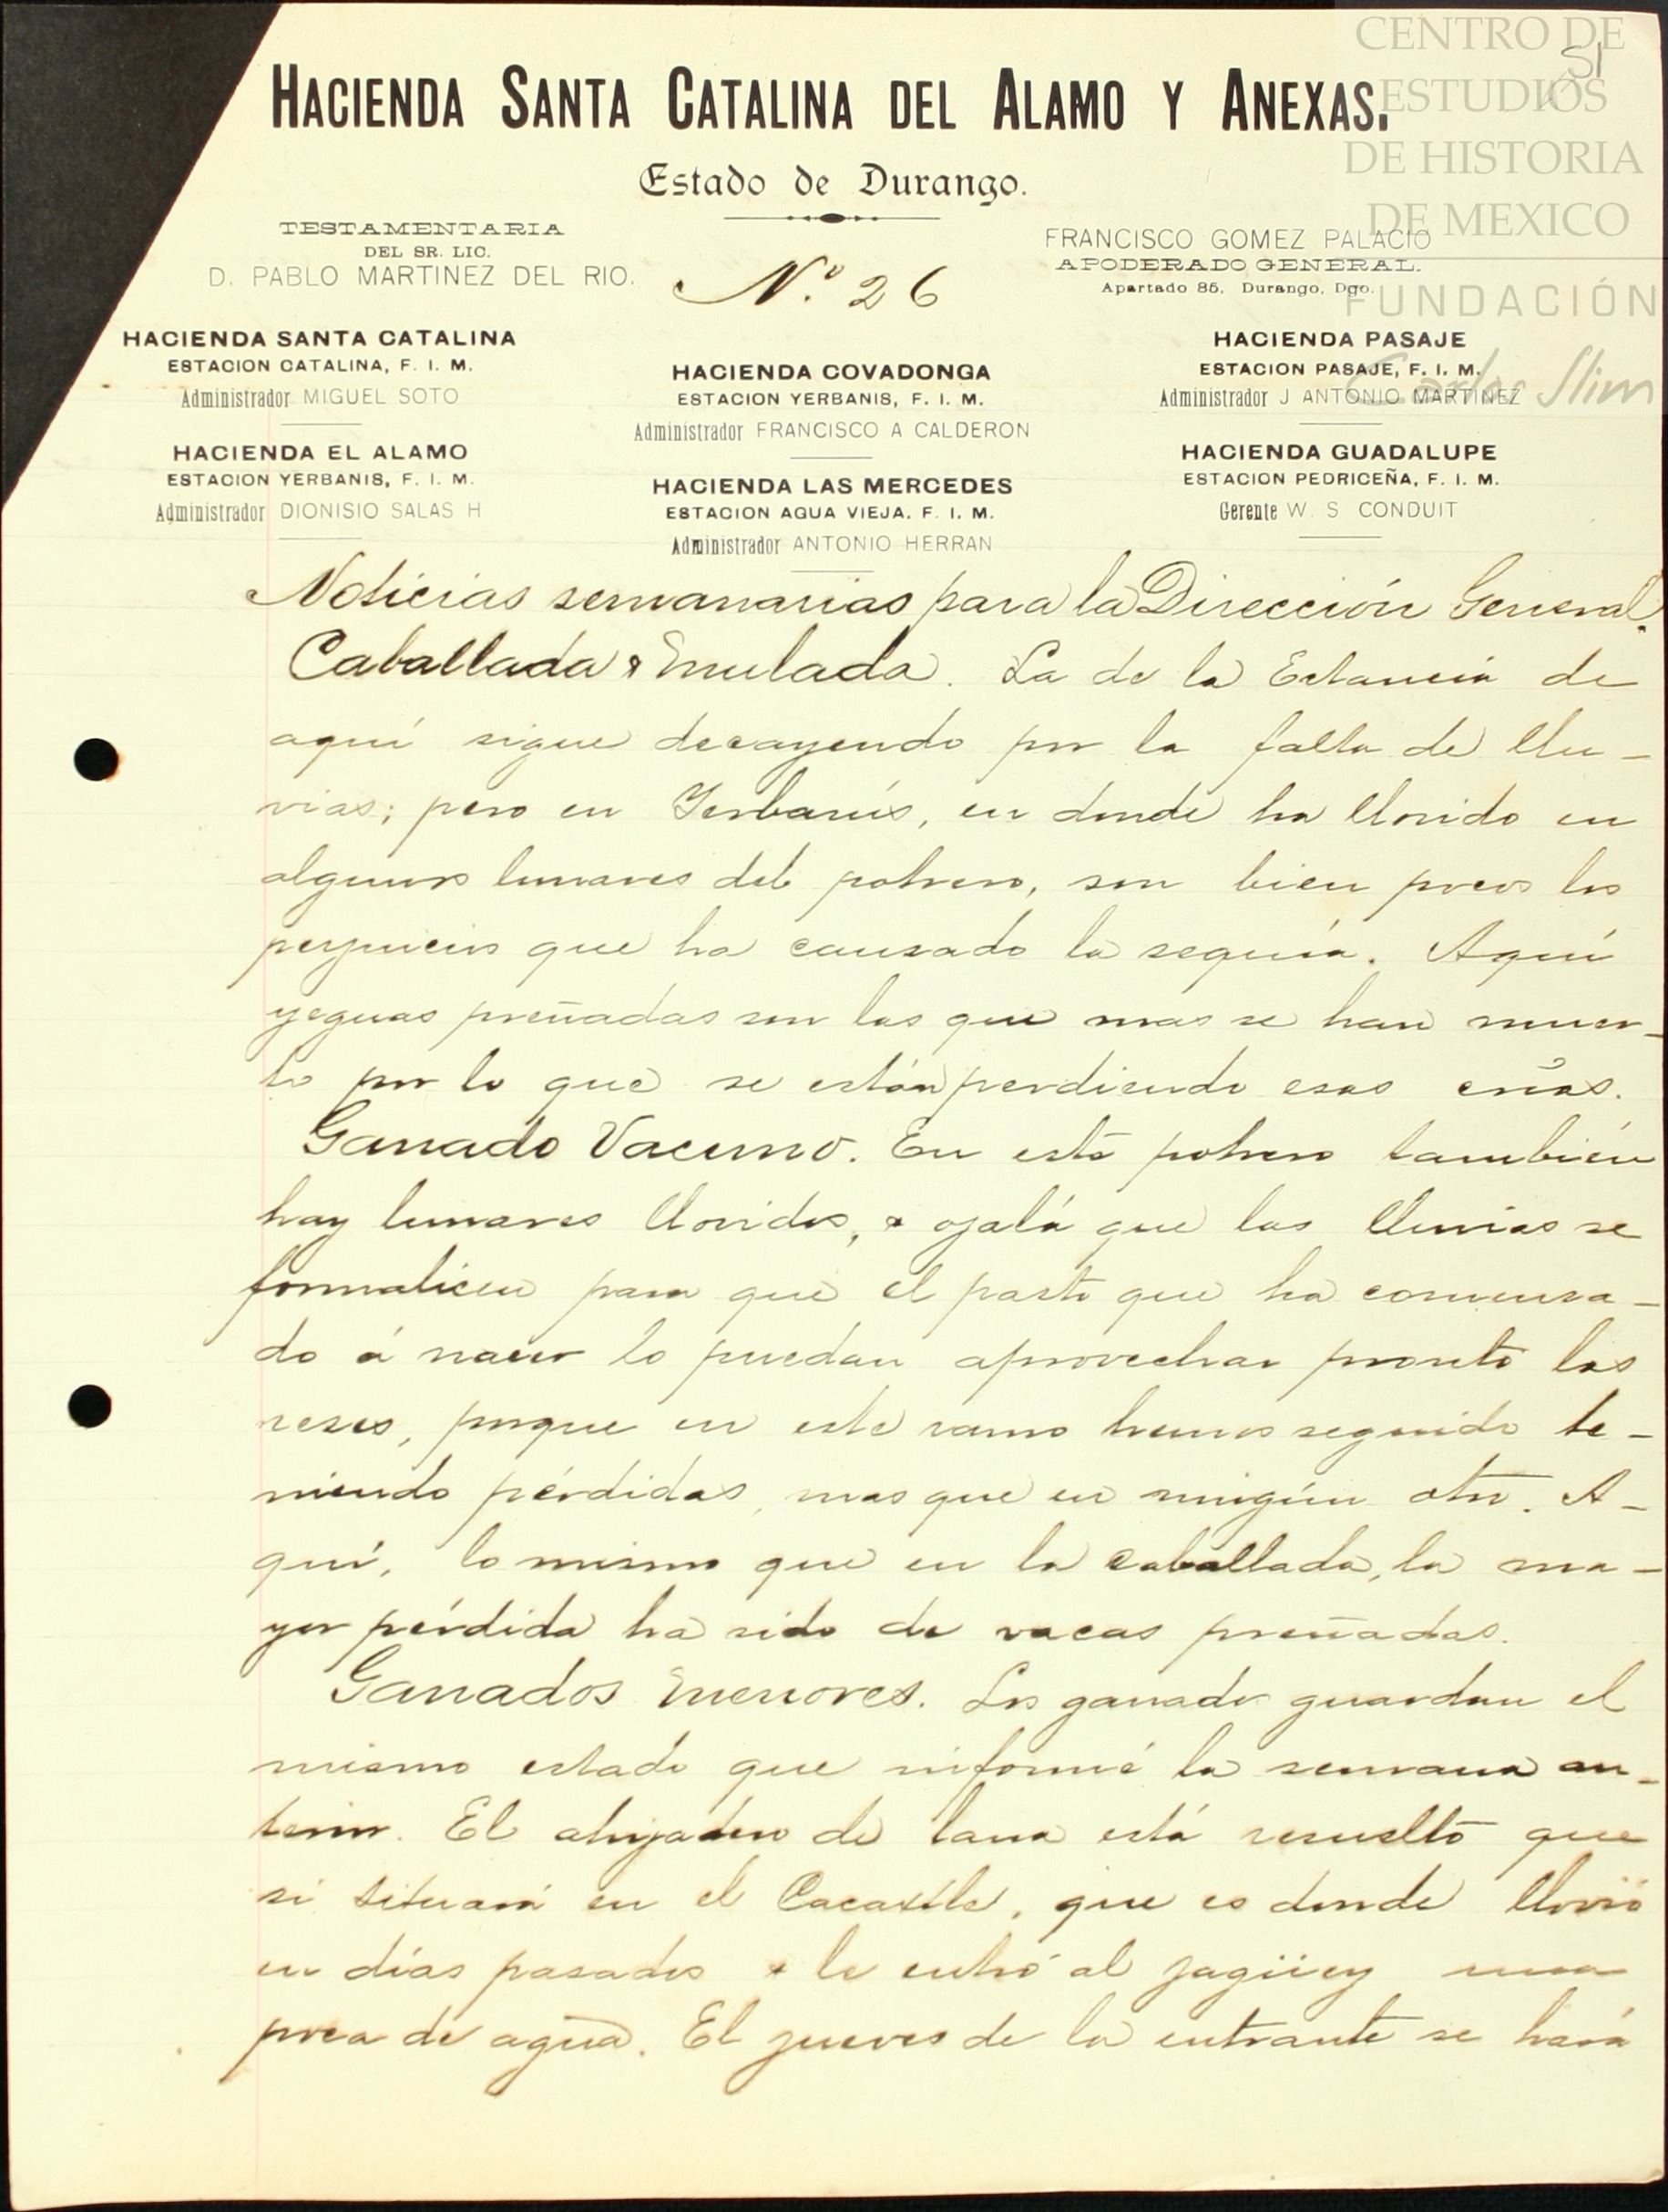 CENTRO DE
ESTUDIOS
DE HISTORIA
DE MEXICO
FUNDACIÓN
Carlos Slim
51
HACIENDA SANTA CATALINA DEL ALAMO Y ANEXAS.
Estado de Durango.
TESTAMENTARIA
DEL SR. LIC.
D. PABLO MARTINEZ DEL RIO.
Nº 26
FRANCISCO GOMEZ PALACIO
APODERADO GENERAL.
Apartado 85. Durango, Dgo.
HACIENDA SANTA CATALINA
ESTACION CATALINA, F. I. M.
Administrador MIGUEL SOTO
HACIENDA EL ALAMO
ESTACION YERBANIS, F. I. M.
Administrador DIONISIO SALAS H
HACIENDA COVADONGA
ESTACION YERBANIS, F. I. M.
Administrador FRANCISCO A CALDERON
HACIENDA LAS MERCEDES
ESTACION AGUA VIEJA. F. I. M.
Administrador ANTONIO HERRAN
HACIENDA PASAJE
ESTACION PASAJE, F. I. M.
Administrador J ANTONIO MARTINEZ
HACIENDA GUADALUPE
ESTACION PEDRICEÑA, F. I. M.
Gerente W. S CONDUIT
Noticias semanarias para la Dirección General.
Caballada & mulada. La de la Estancia de
aquí sigue decayendo por la falta de llu-
vias; pero en Yerbanís, en donde ha llovido en
algunos lunares del potrero, son bien pocos los
perjuicios que ha causado la sequía. Aquí
yeguas preñadas son las que mas se han muer-
to por lo que se están perdiendo esas crías.
Ganado Vacuno. En este potrero también
hay lunares llovidos, & ojalá que las lluvias se
formalicen para que el pasto que ha comenza-
do á nacer lo puedan aprovechar pronto las
reses, porque en este ramo hemos seguido te-
niendo pérdidas, mas que en ningún otro. A-
quí, lo mismo que en la caballada, la ma-
yor pérdida ha sido de vacas preñadas.
Ganados menores. Los ganados guardan el
mismo estado que informé la semana an-
terior. El ahijadero de lana está resuelto que
se situará en el Cacaxtle, que es donde llovió
en días pasados & le entró al jagüey una
poca de agua. El jueves de la entrante se hará